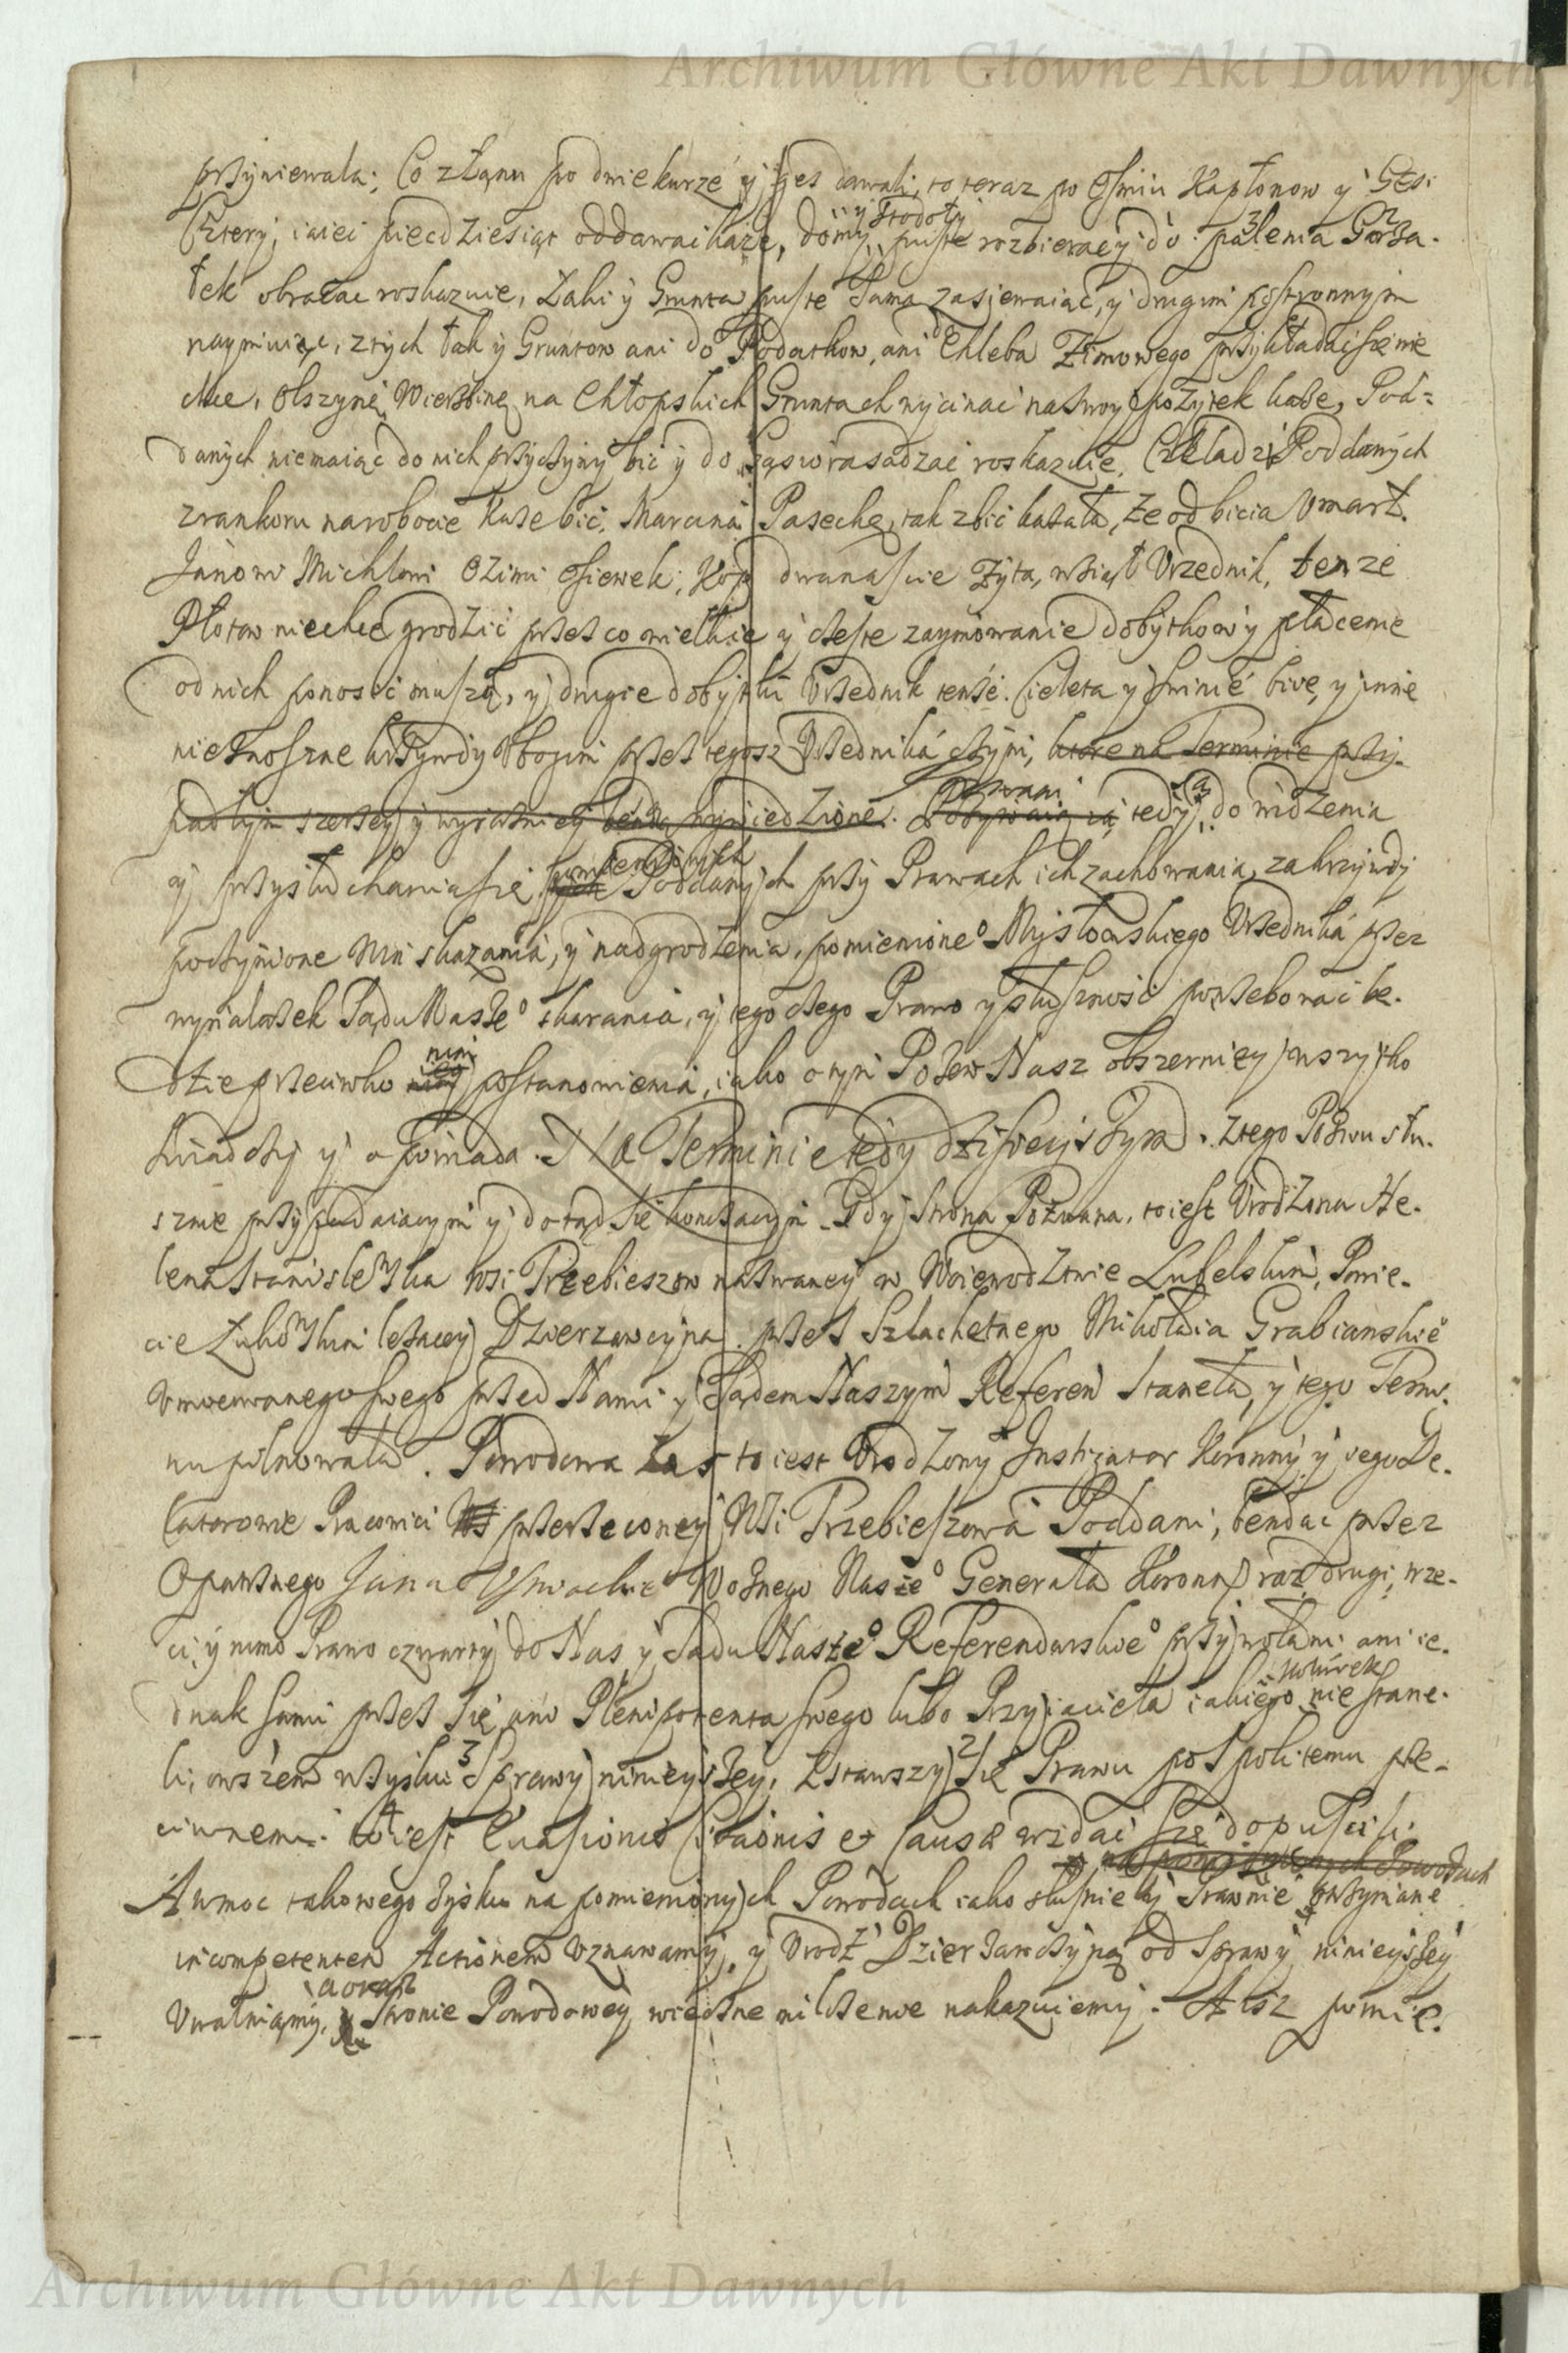 Archiwum Główne Akt Dawnych
przyniewala; Co z Łanu po dwie kurze y gęs dawali, to teraz po Osmiu Kapłonow y Gęsi
Cztery, iaiec piecdziesiąt oddawai każe, domy y Stodoły puste rozbieracy do palenia Gorza-
łek obracac roskazuie, Łąki y Grunta puste Sama zasiewaiąc, y drugim postronnym
naymuiąc, z tych Łąk y Gruntow ani do Podatkow, ani do Chleba Zimowego przykładac sie nie
chce, Olszynę, Wierzbinę na Chłopskich Gruntach wycinac na swoy pożytek każe, Pod-
danych niemaiąc do nich przyczyny bic y do wsadzac roskazuie, Czeladz Poddanych
z rankoru na robocie każe bic, Marcina Pasechę, tak zbic kazała, że od bicia Vmarł.
Janowi Michlowi Ozimi Osiewek, Kop dwanascie Żyta, wziął Vrzednik, tenze
Płotow niechce grodzic przez co wielkie y częste zaymowanie dobytkow y płacenie
od nich ponosic muszą, y drugie dobytki Vrzednik tenże Cielęta y swinie biie, y inne
nieznoszne krzywdy Vbogim przez tegosz Vrzednika czyni, ktore na Terminie przy-
padłym szerzey y wyrazniey będą wywiedzione. Pozwani są tedy do widzenia
y przysłuchania się pomienionych Poddanych przy Prawach ich zachowania, za krzywdy
poczynione Win skazania, y nadgrodzenia, pomienione° Mysłowskiego Vrzednika przez
wynalazek Sądu Nasze° skarania, y tego czego Prawo y słuszność potrzebowac bę-
dzie przeciwko nim postanowienia, iako o tym Pozew Nasz obszerniey wszytko
swiadczy y opowiada. Na Terminie tedy dzisieyszym z tego Pozwu słu-
sznie przypadaiącym y dotąd się konczącym Gdy strona Pozwana, to iest Vrodzona He-
lena Stanisłewska wsi Trzebieszow nazwaney w Woiewodztwie Lubelskim, Powie-
cie Łukowskim leżącey Dzierzawczyna przez Szlachetnego Mikołaia Grabianskie°
Vmocowanego swego przed Nami y Sądem Naszym Referen stanęła, y tego Termi-
nu pilnowała. Powodowa zas to iest Vrodzony Instigator Koronny y iego De-
latorowie Pracowici przerzeconey Wsi Trzebieszowa Poddani, będąc przez
Opatrznego Jana Woznego Nasze° Generała Koron. raz, drugi, trze-
ci, y nimo Prawo czwarty do Nas y Sądu Nasze° Referendarskie° przywołani ani ie-
dnak sami przez się ani Plenipotenta swego lubo Przyiaciela iakiego kolwiek nie stane-
li, owszem wzysku Sprawy ninieyszey, Zstawszy się Prawu pospolitemu prze-
ciwnemi to iest Euasionis Citationis et Causæ wzdac się dopuscili.
A w moc takowego Zysku na pomienionych Powodach iako słusznie y Prawnie otrzymane
incompetentem Actionem Vznawamy, y Vrodz Dzierzawczynę od Sprawy ninieyszey
Vwalniamy, a oraz Stronie Powodowey wieczne milczenie nakazuiemy. Asz pomie-
Archiwum Główne Akt Dawnych